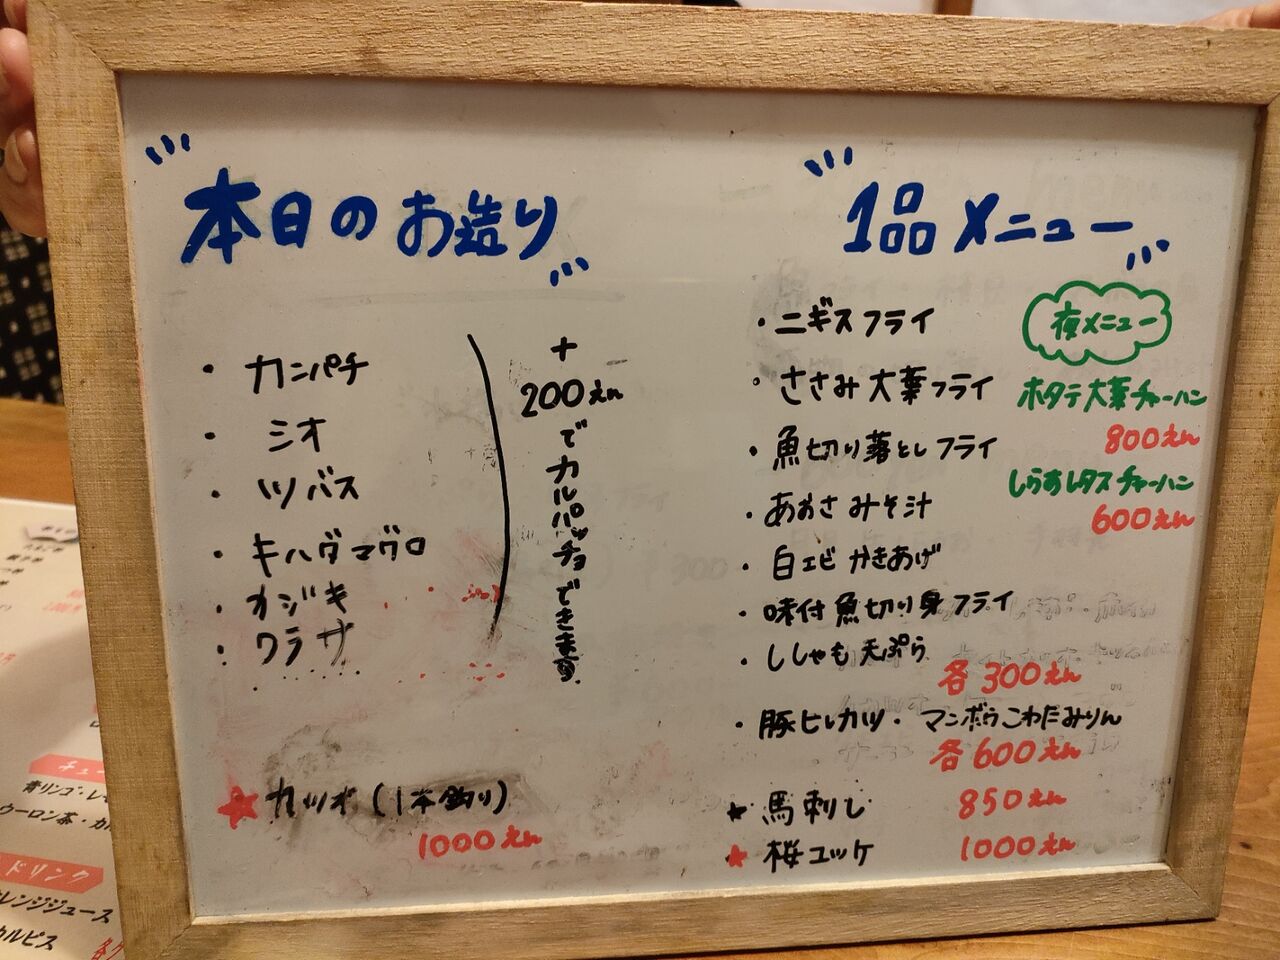 本日のお造り
・カンパチ
・シオ
・ツバス
・キハダマグロ
・カジキ
・ワラサ
+
200えん
でカルパッチョできます。
★カツオ(1本釣り)
1000えん
1品メニュー
・ニギスフライ
・ささみ大葉フライ
・魚切り落としフライ
・あおさみそ汁
・白エビかきあげ
・味付魚切り身フライ
・ししゃも天ぷら
各300えん
・豚ヒレカツ・マンボウこわたみりん
各600えん
★馬刺し 850えん
★桜ユッケ 1000えん
夜メニュー
ホタテ大葉チャーハン
800えん
しらすレタスチャーハン
600えん
青リンゴ・レモ
ウーロン茶・カル
ドリンク
レンジジュース
カルピス